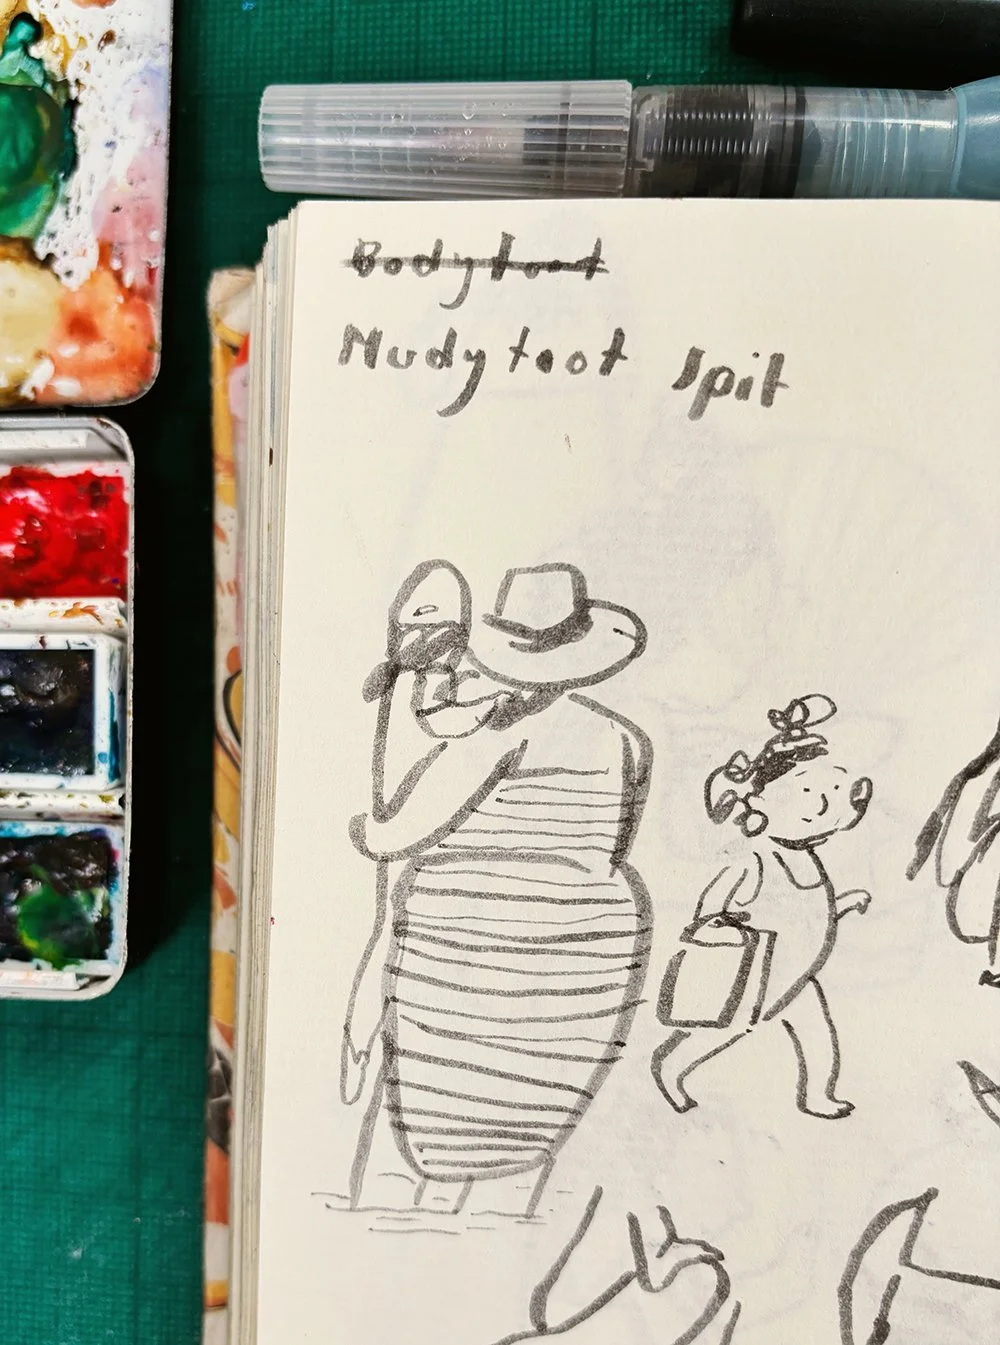 Bodytoot
Nudytoot spit